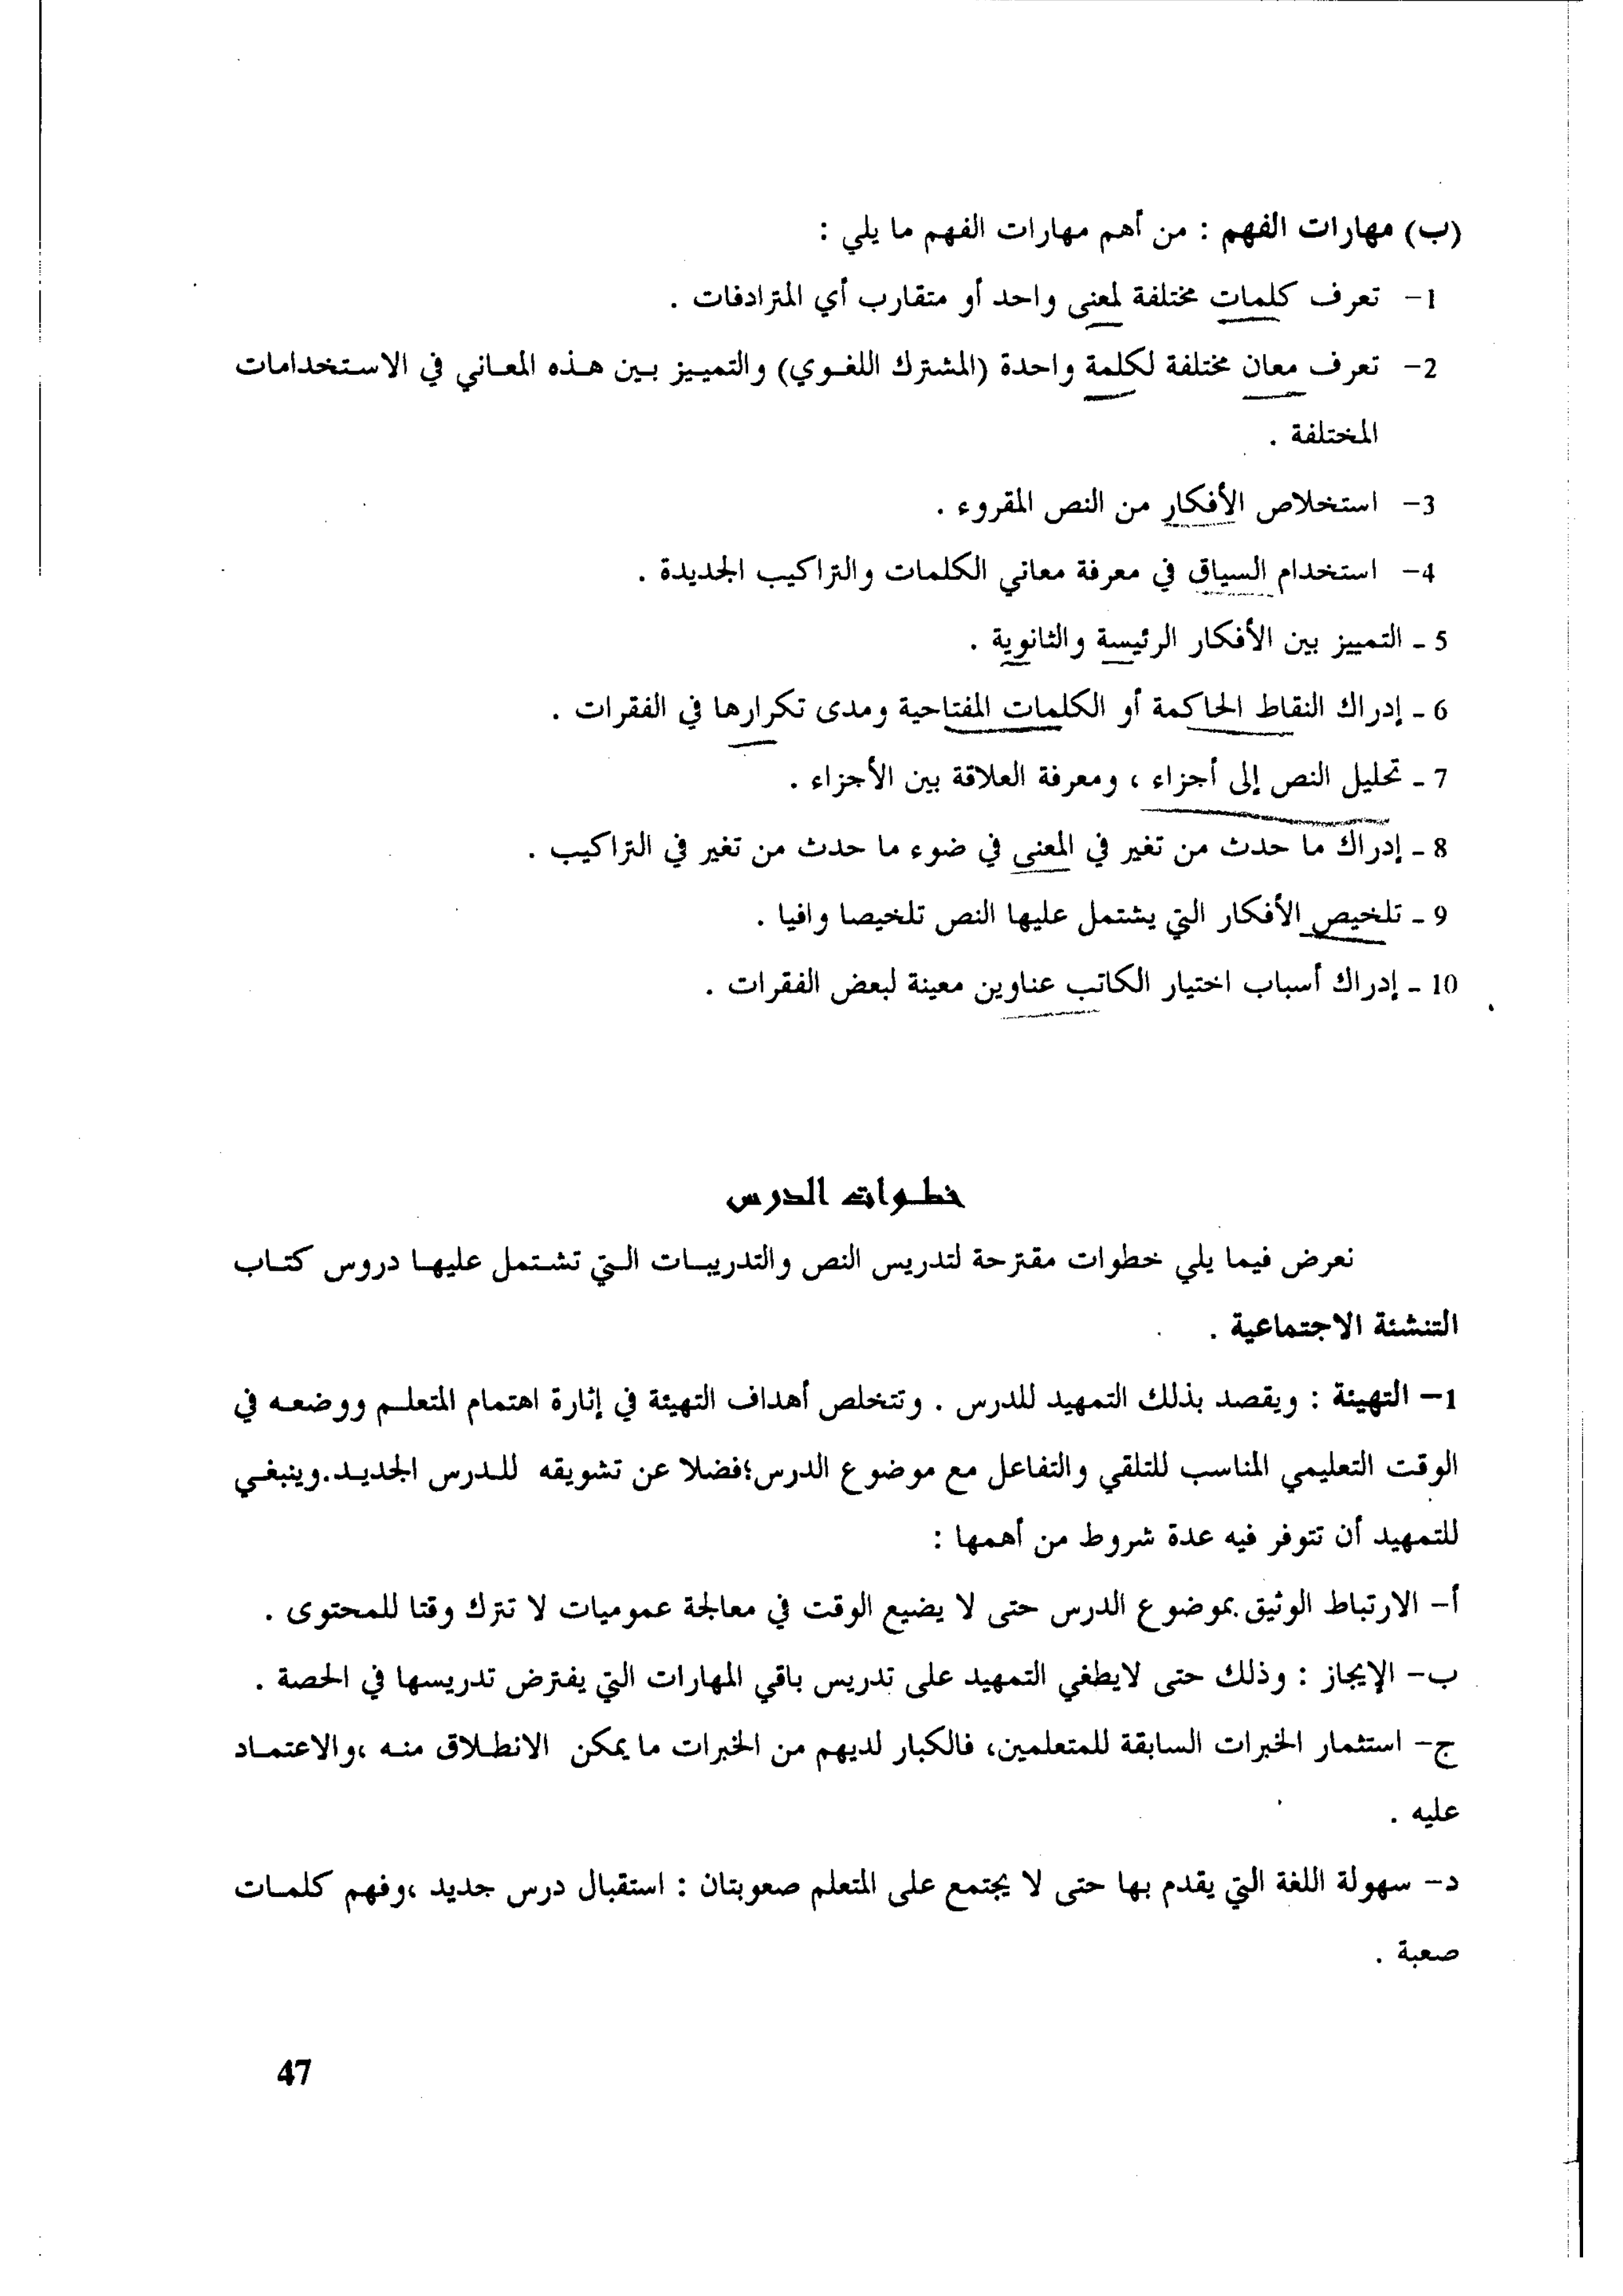 (ب) مهارات الفهم : من أهم مهارات الفهم ما يلي :
1- تعرف كلمات مختلفة لمعنى واحد أو متقارب أي المترادفات .
2- تعرف معان مختلفة لكلمة واحدة (المشترك اللغوي) والتمييز بين هذه المعاني في الاستخدامات
المختلفة .
3- استخلاص الأفكار من النص المقروء .
4- استخدام السياق في معرفة معاني الكلمات والتراكيب الجديدة .
5 - التمييز بين الأفكار الرئيسة والثانوية .
6 - إدراك النقاط الحاكمة أو الكلمات المفتاحية ومدى تكرارها في الفقرات .
7 - تحليل النص إلى أجزاء ، ومعرفة العلاقة بين الأجزاء .
8 - إدراك ما حدث من تغير في المعنى في ضوء ما حدث من تغير في التراكيب .
9 - تلخيص الأفكار التي يشتمل عليها النص تلخيصا وافيا .
10 - إدراك أسباب اختيار الكاتب عناوين معينة لبعض الفقرات .
خطوات الدرس
نعرض فيما يلي خطوات مقترحة لتدريس النص والتدريبات التي تشتمل عليها دروس كتاب
التنشئة الاجتماعية .
1- التهيئة : ويقصد بذلك التمهيد للدرس . وتتخلص أهداف التهيئة في إثارة اهتمام المتعلم ووضعه في
الوقت التعليمي المناسب للتلقي والتفاعل مع موضوع الدرس؛فضلا عن تشويقه للدرس الجديد.وينبغي
للتمهيد أن تتوفر فيه عدة شروط من أهمها :
أ- الارتباط الوثيق بموضوع الدرس حتى لا يضيع الوقت في معالجة عموميات لا تترك وقتا للمحتوى .
ب- الإيجاز : وذلك حتى لايطغي التمهيد على تدريس باقي المهارات التي يفترض تدريسها في الحصة .
ج- استثمار الخبرات السابقة للمتعلمين، فالكبار لديهم من الخبرات ما يمكن الانطلاق منه ،والاعتماد
عليه .
د- سهولة اللغة التي يقدم بها حتى لا يجتمع على المتعلم صعوبتان : استقبال درس جديد ،وفهم كلمات
صعبة .
47